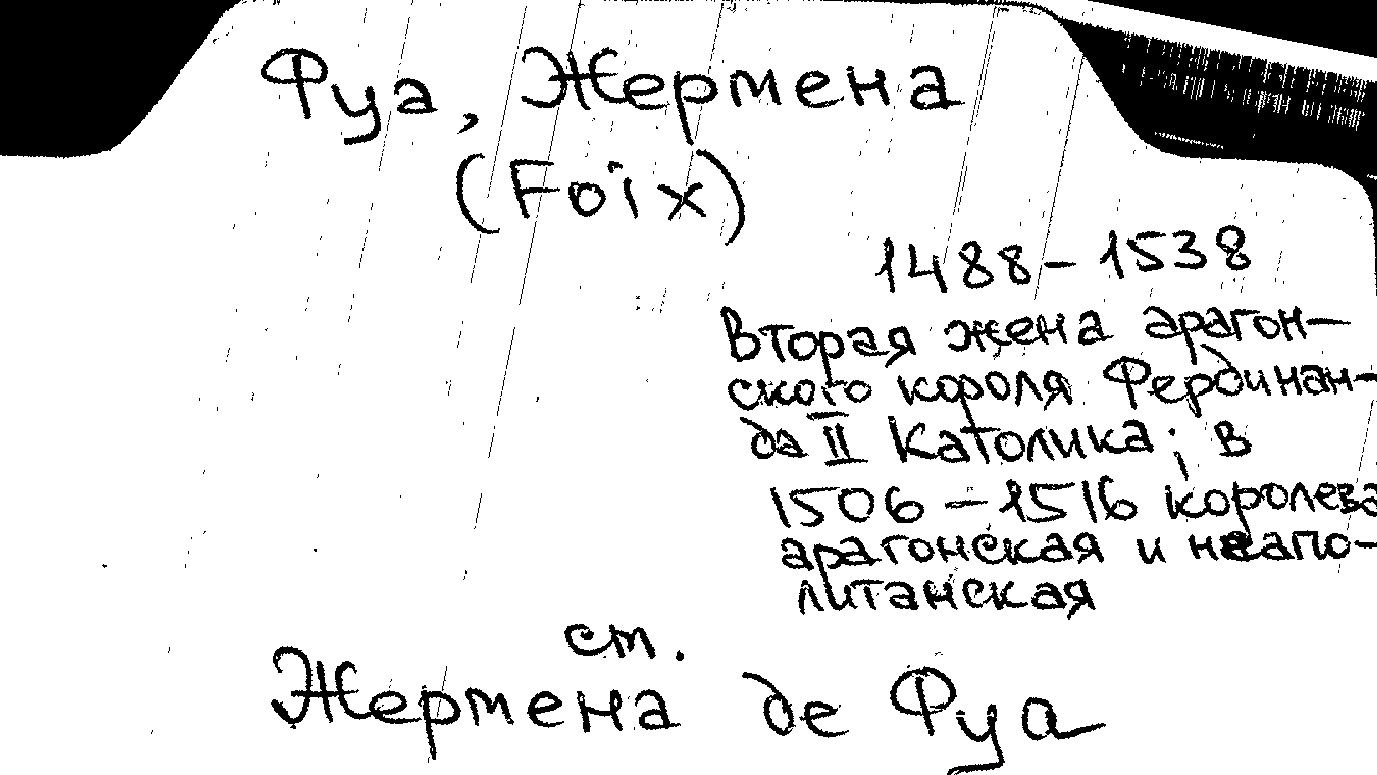 Фуа, Жермена
(Foix)
1488-1538
Вторая жена арагон-
ского короля Фердинан-
да II Католика; в
1506-1516 королева
арагонская и неапо-
литанская
ст.
Жермена де Фуа